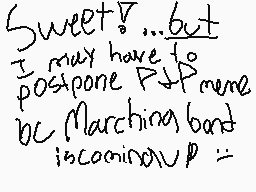 Sweet! ...but
I may have to
postpone PJP meme
bc Marching band
is coming up :-